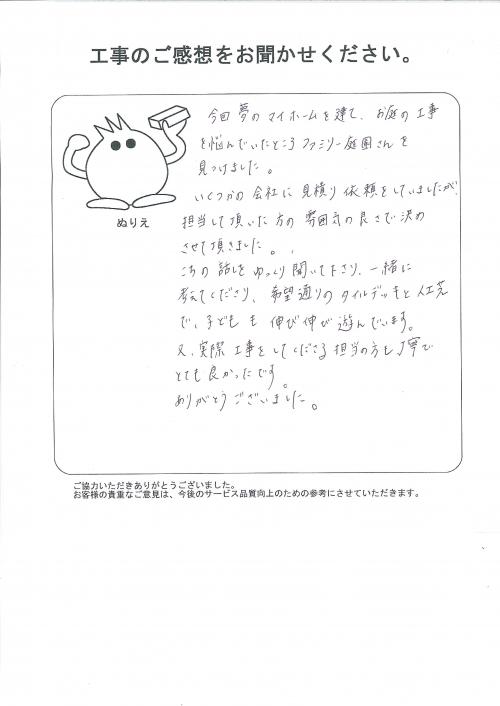 工事のご感想をお聞かせください。
今回夢のマイホームを建て、お庭の工事
を悩んでいたところファミリー庭園さんを
見つけました。
いくつかの会社に見積り依頼をしていましたが、
担当して頂いた方の雰囲気の良さで決め
させて頂きました。
こちの話しをゆっくり聞いて下さり、一緒に
考えてくださり、希望通りのタイルデッキと人工芝
で、子どもも伸び伸び遊んでいます。
又、実際工事をしてくださる担当の方も丁寧で
とても良かったです。
ありがとうございました。
ぬりえ
ご協力いただきありがとうございました。
お客様の貴重なご意見は、今後のサービス品質向上のための参考にさせていただきます。